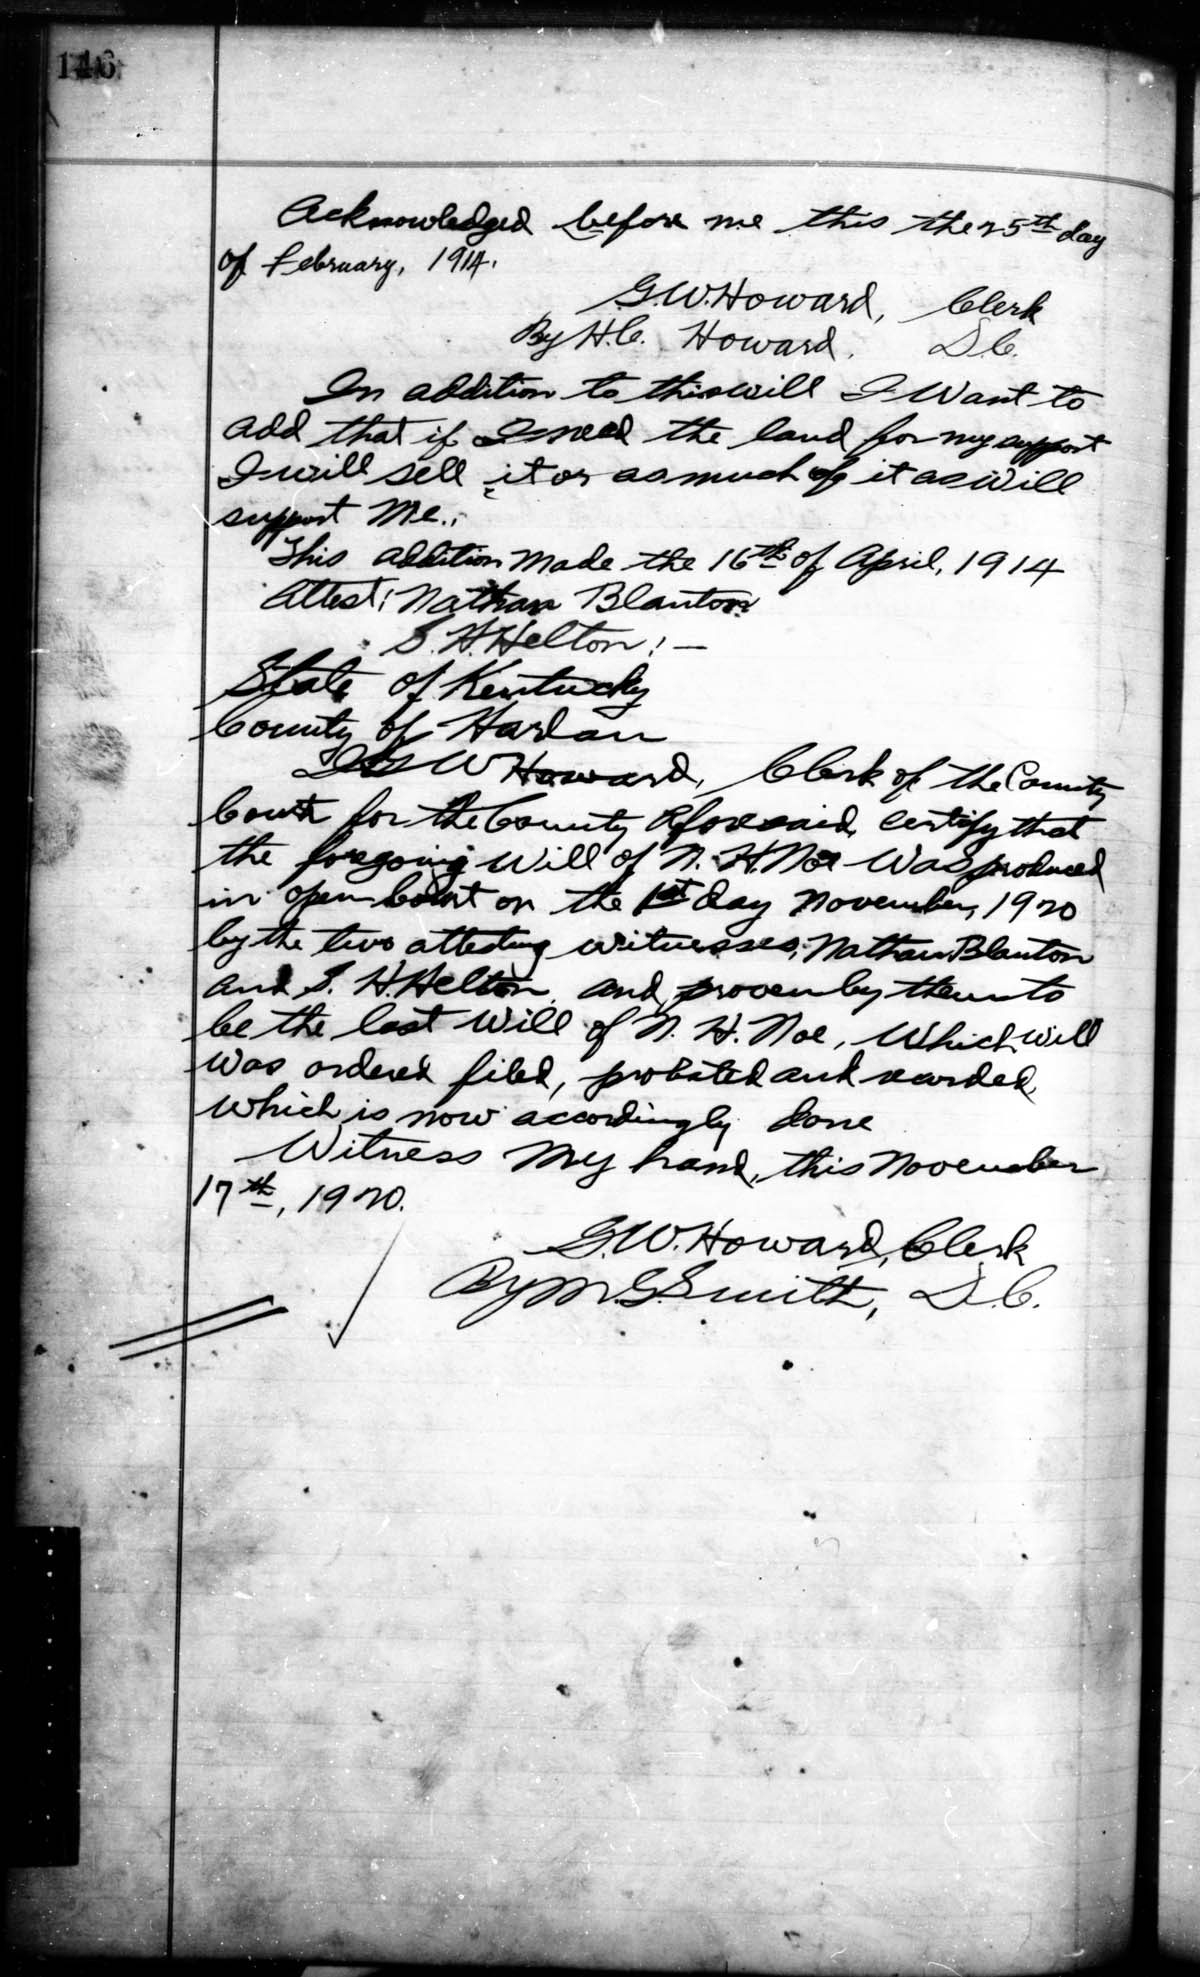 146
Acknowledged before me this the 25th day
of February, 1914.
G.W. Howard, Clerk
By H.C. Howard, D.C.
In addition to this will I Want to
add that if I need the land for my support
I will sell it or as much of it as Will
support Me.
This addition Made the 16th of April, 1914
Attest: Nathan Blanton
S. H. Helton! —
State of Kentucky
County of Harlan
I G W Howard, Clerk of the County
Court for the County aforesaid, certify that
the foregoing Will of N. H. Noe Was produced
in open Court on the 1st day November, 1920
by the two attesting witnesses, Nathan Blanton
and S. H. Helton, and proven by them to
be the last Will of N. H. Noe, Which Will
Was ordered filed, probated and recorded,
Which is now accordingly done
Witness My hand, this November
17th, 1920.
G.W. Howard, Clerk
By M.G. Smith, D.C.